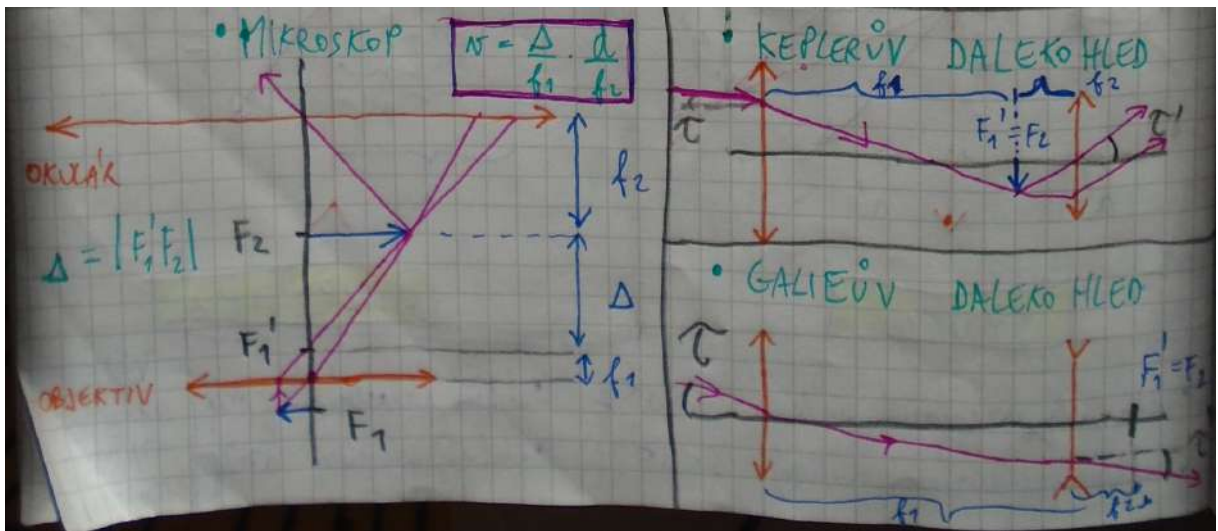 • MIKROSKOP
γ = Δ/f1 · d/f2
OKULÁR
f2
Δ = |F1'F2|
F2
Δ
F1'
OBJEKTIV
f1
F1
• KEPLERŮV DALEKOHLED
f1
f2
τ
F1' = F2
τ'
• GALIEŮV DALEKOHLED
τ
F1' = F2
τ'
f1
f2